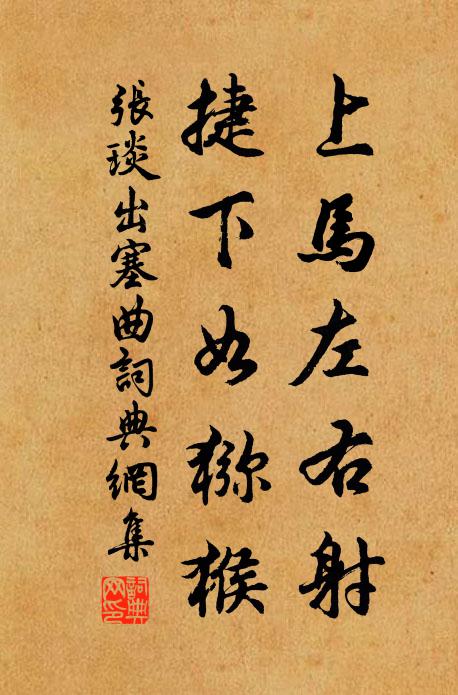 上馬左右射
捷下如獼猴
張琰出塞曲詞典網集
詞典網印